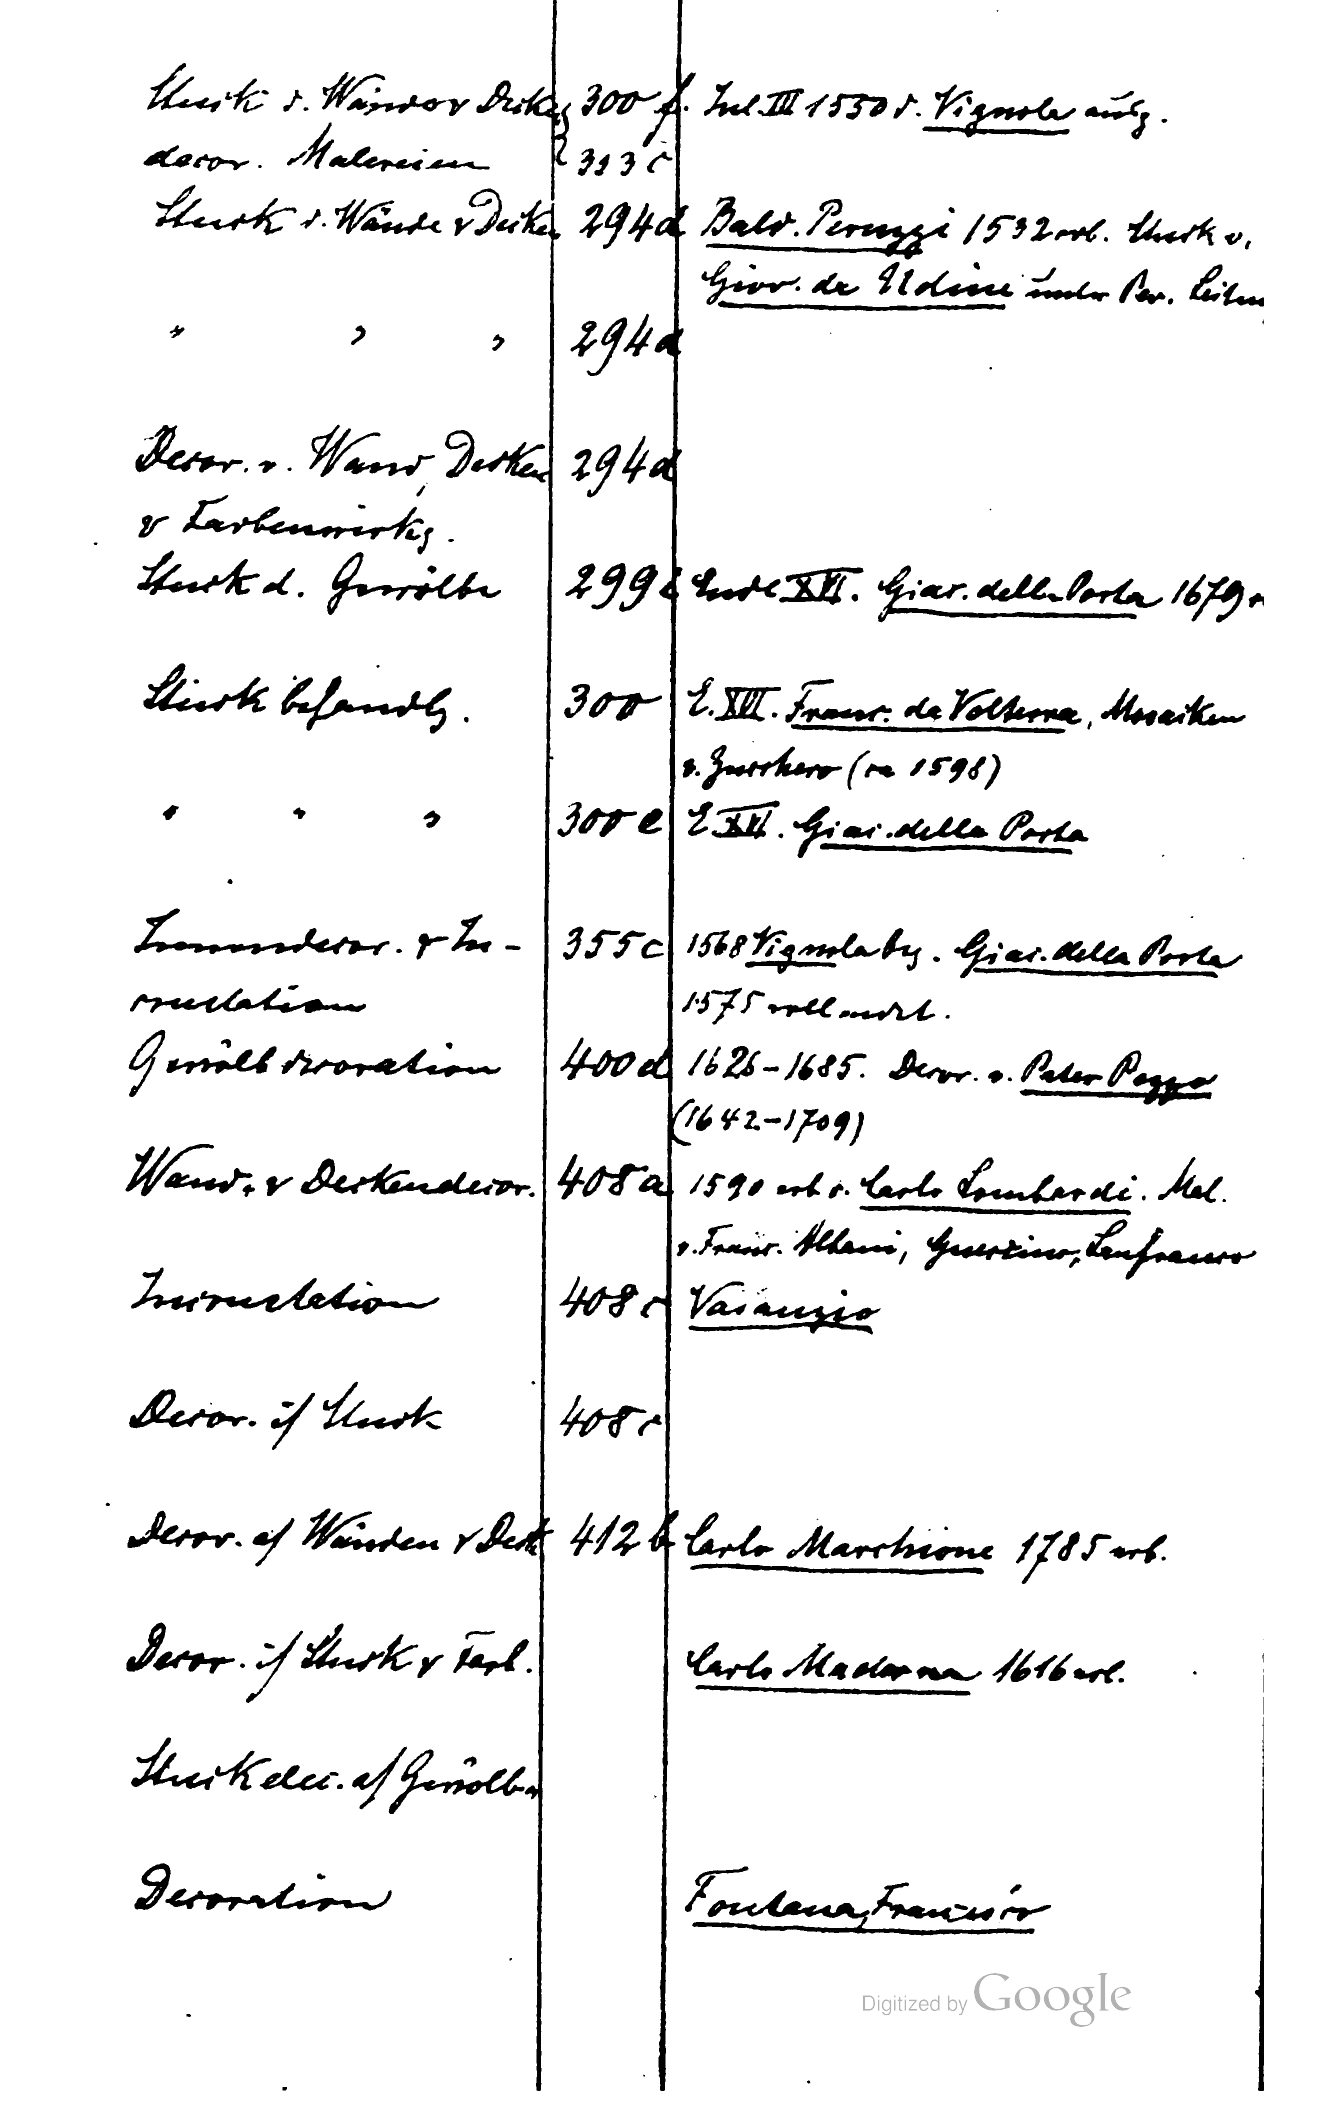 Stuck d. Wände & Decken 300 f. Jul. III 1550 d. Vignola aufg.
decor. Malereien 393 c
Stuck d. Wände & Decken 294 d Bald. Peruzzi 1532 erb. Stuck v.
Giov. da Udine unter Per. Leitun
" " " 294 d
Decor. v. Wand, Decken 294 d
& Farbenwirkg.
Stuck d. Gewölbe 299 Ende XVI. Giac. della Porta 1679
Stuckbehandlg. 300 E. XVI. Franc. da Volterra, Mosaiken
v. Zucchero (ca 1598)
" " " 300 e E XVI. Giac. della Porta
Innendecor. & In-
355 c 1568 Vignola beg. Giac. della Porta
crustation 1575 vollendet.
Gewölbdecoration 400 d 1626-1685. Decor. v. Pater Pozzo
(1642-1709)
Wand- & Deckendecor. 408 a 1590 erb v. Carlo Lombardi. Mal.
v. Franc. Albani, Guercino, Lanfranco
Incrustation 408 c Vasanzio
Decor. i/ Stuck 408 c
Decor. a/ Wänden & Deck 412 b Carlo Marchione 1785 erb.
Decor. i/ Stuck & Farb. Carlo Maderna 1616 erb.
Stuckdec. a/ Gewölben
Decoration Fontana, Francesco
Digitized by Google